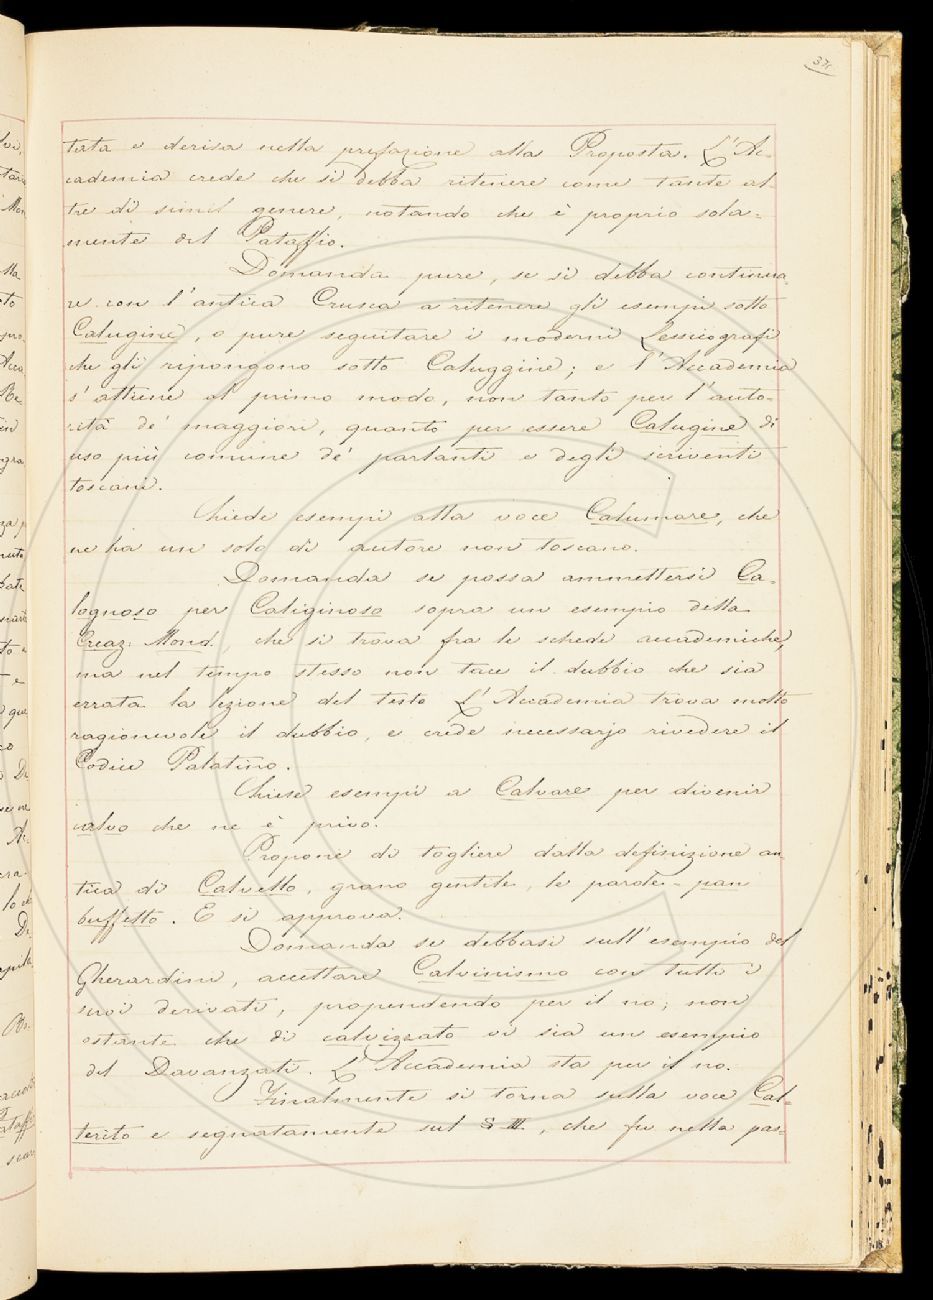 375
tata e derisa nella prefazione alla Proposta. L'Ac-
cademia crede che si debba ritenere come tante al-
tre di simil genere, notando che è proprio sola-
mente del Pataffio.
Domanda pure, se si debba continua-
re con l'antica Crusca a ritenere gli esempi sotto
Calugine, o pure seguitare i moderni Lessicografi
che gli ripongono sotto Caluggine; e l'Accademia
s'attiene al primo modo, non tanto per l'auto-
rità de' maggiori, quanto per essere Calugine di
uso più comune de' parlanti e degli scriventi
toscani.
Chiede esempi alla voce Calumare, che
ne ha un solo di autore non toscano.
Domanda se possa ammettersi Ca-
lognoso per Caliginoso sopra un esempio della
Creaz. Mond., che si trova fra le schede accademiche,
ma nel tempo stesso non tace il dubbio che sia
errata la lezione del testo L'Accademia trova molto
ragionevole il dubbio, e crede necessarjo rivedere il
Codice Palatino.
Chiese esempi a Calvare per divenir
calvo che ne è privo.
Propone di togliere dalla definizione an-
tica di Calvello, grano gentile, le parole - pan
buffetto. E si approva.
Domanda se debbasi sull'esempio del
Gherardini, accettare Calvinismo con tutti i
suoi derivati, propendendo per il no; non
ostante che di calvizzato vi sia un esempio
del Davanzati. L'Accademia sta per il no.
Finalmente si torna sulla voce Cal-
terito e segnatamente sul § III, che fu nella pas-